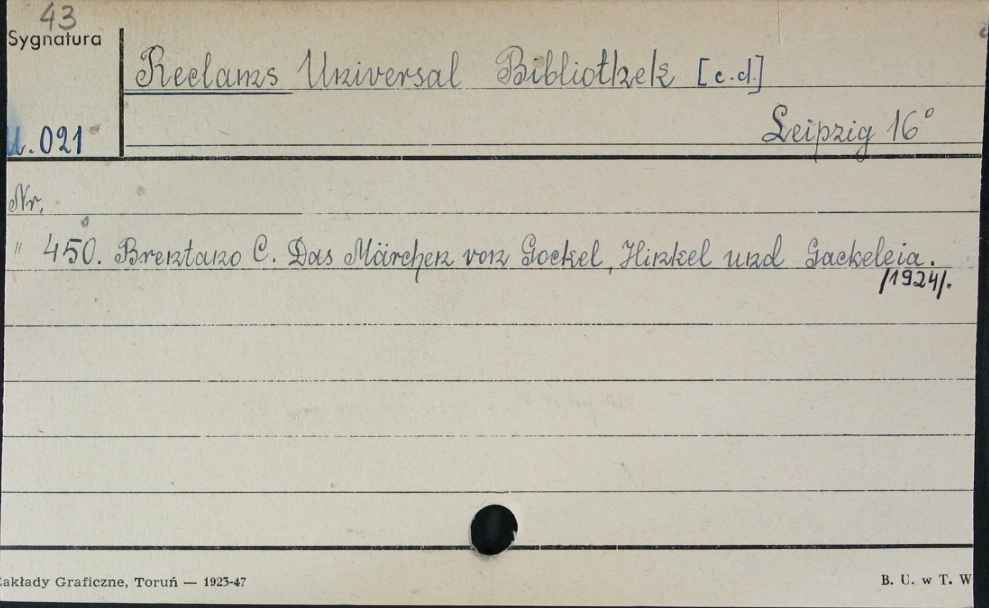 43
Sygnatura
Reclams Universal Bibliothek [c.d.]
U. 021
Leipzig 16°
Nr.
" 450. Brentano C. Das Märchen von Gockel, Hinkel und Gackeleia.
/1924/.
Zakłady Graficzne, Toruń — 1923-47
B. U. w T. W